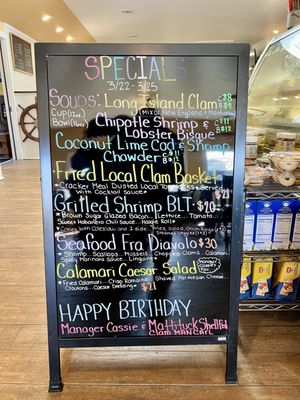 SPECIALS
3/22 - 3/25
SOUPS: Long Island Clam $8
(Mix of New England & Manhattan)
Cup (12oz) Chipotle Shrimp & $11
Bowl (16oz) Lobster Bisque $12
Coconut Lime Cod & Shrimp
Chowder $12
Fried Local Clam Basket
*Cracker Meal Dusted Local Served
with Cocktail Sauce* $24
Grilled Shrimp BLT: $20
*Brown Sugar Glazed Bacon, Lettuce, Tomato,
Sweet Habanero Chili Sauce - Hoagie Roll*
*Comes with Coleslaw and 1 side: Fries, Salad, Onion Rings
Steamed Veggies
Seafood Fra Diavolo $30
*Shrimp, Scallops, Mussels, Chopped Clams, Calamari
Spicy Marinara Sauce, Linguine*
Calamari Caesar Salad
*Fried Calamari - Crisp Romaine, Shaved Parmesan Cheese
Croutons, Caesar Dressing* $21
HAPPY BIRTHDAY
Manager Cassie & Mattituck Shellfish
Clam MANCARL